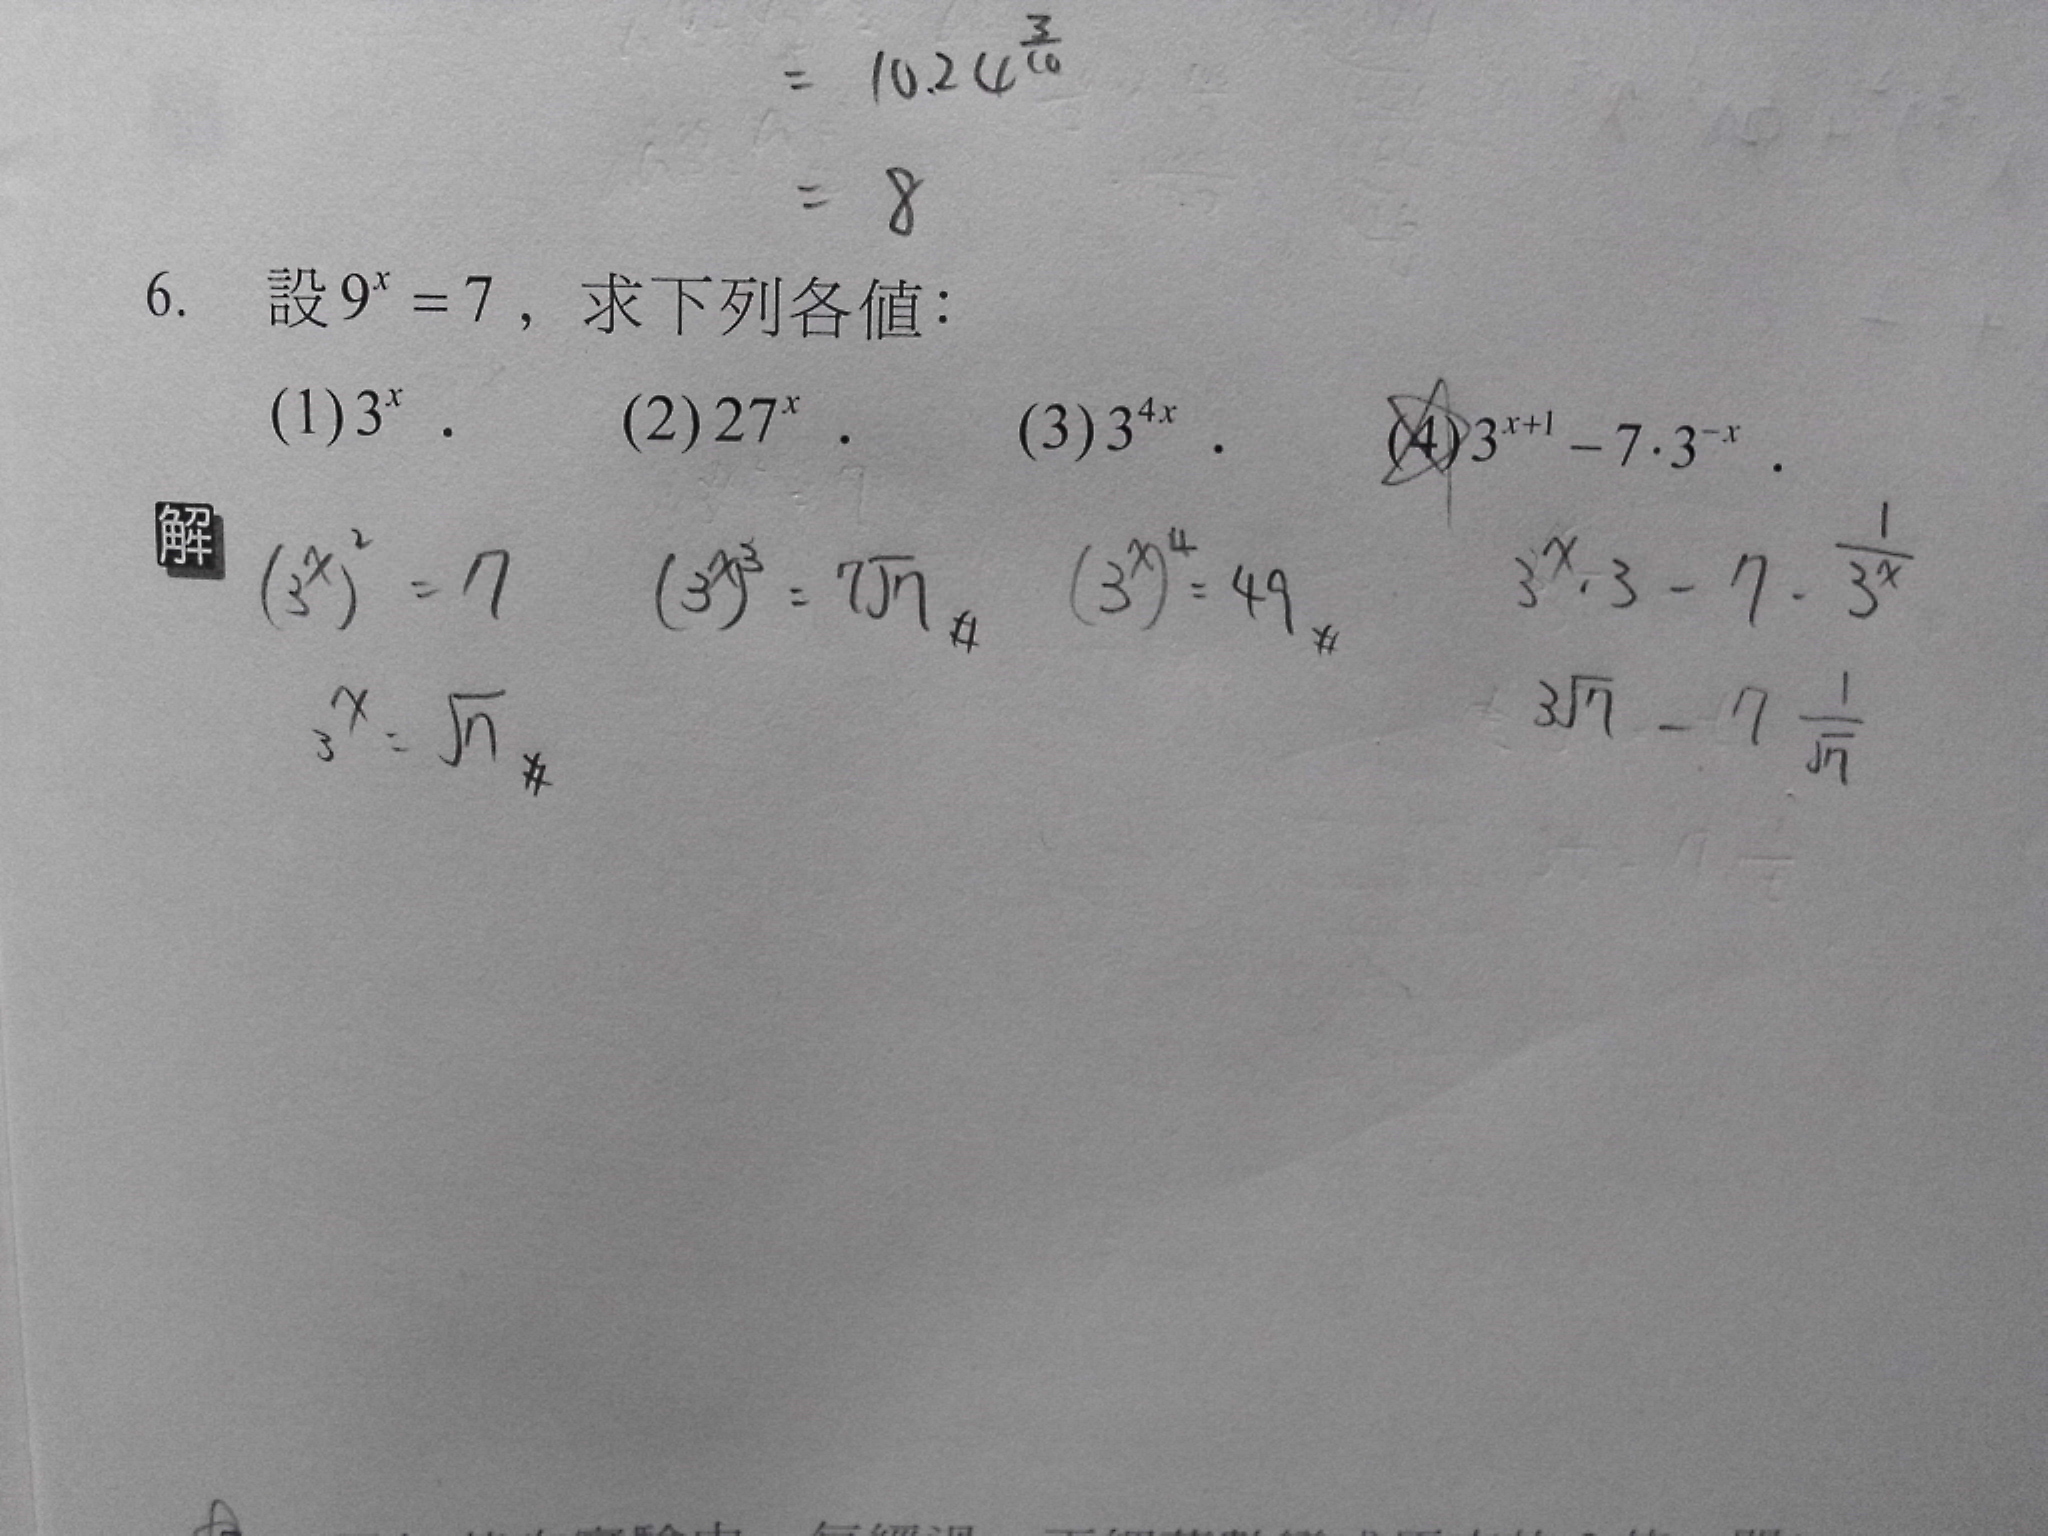 = 10.24^{\frac{3}{10}}
= 8
6. 設 9^x = 7，求下列各值：
(1) 3^x . (2) 27^x . (3) 3^{4x} . (4) 3^{x+1} − 7·3^{−x} .
解 (3^x)^2 = 7 (3^x)^3 = 7√7 # (3^x)^4 = 49 # 3^x · 3 − 7 · \frac{1}{3^x}
3^x = √7 # 3√7 − 7 \frac{1}{√7}